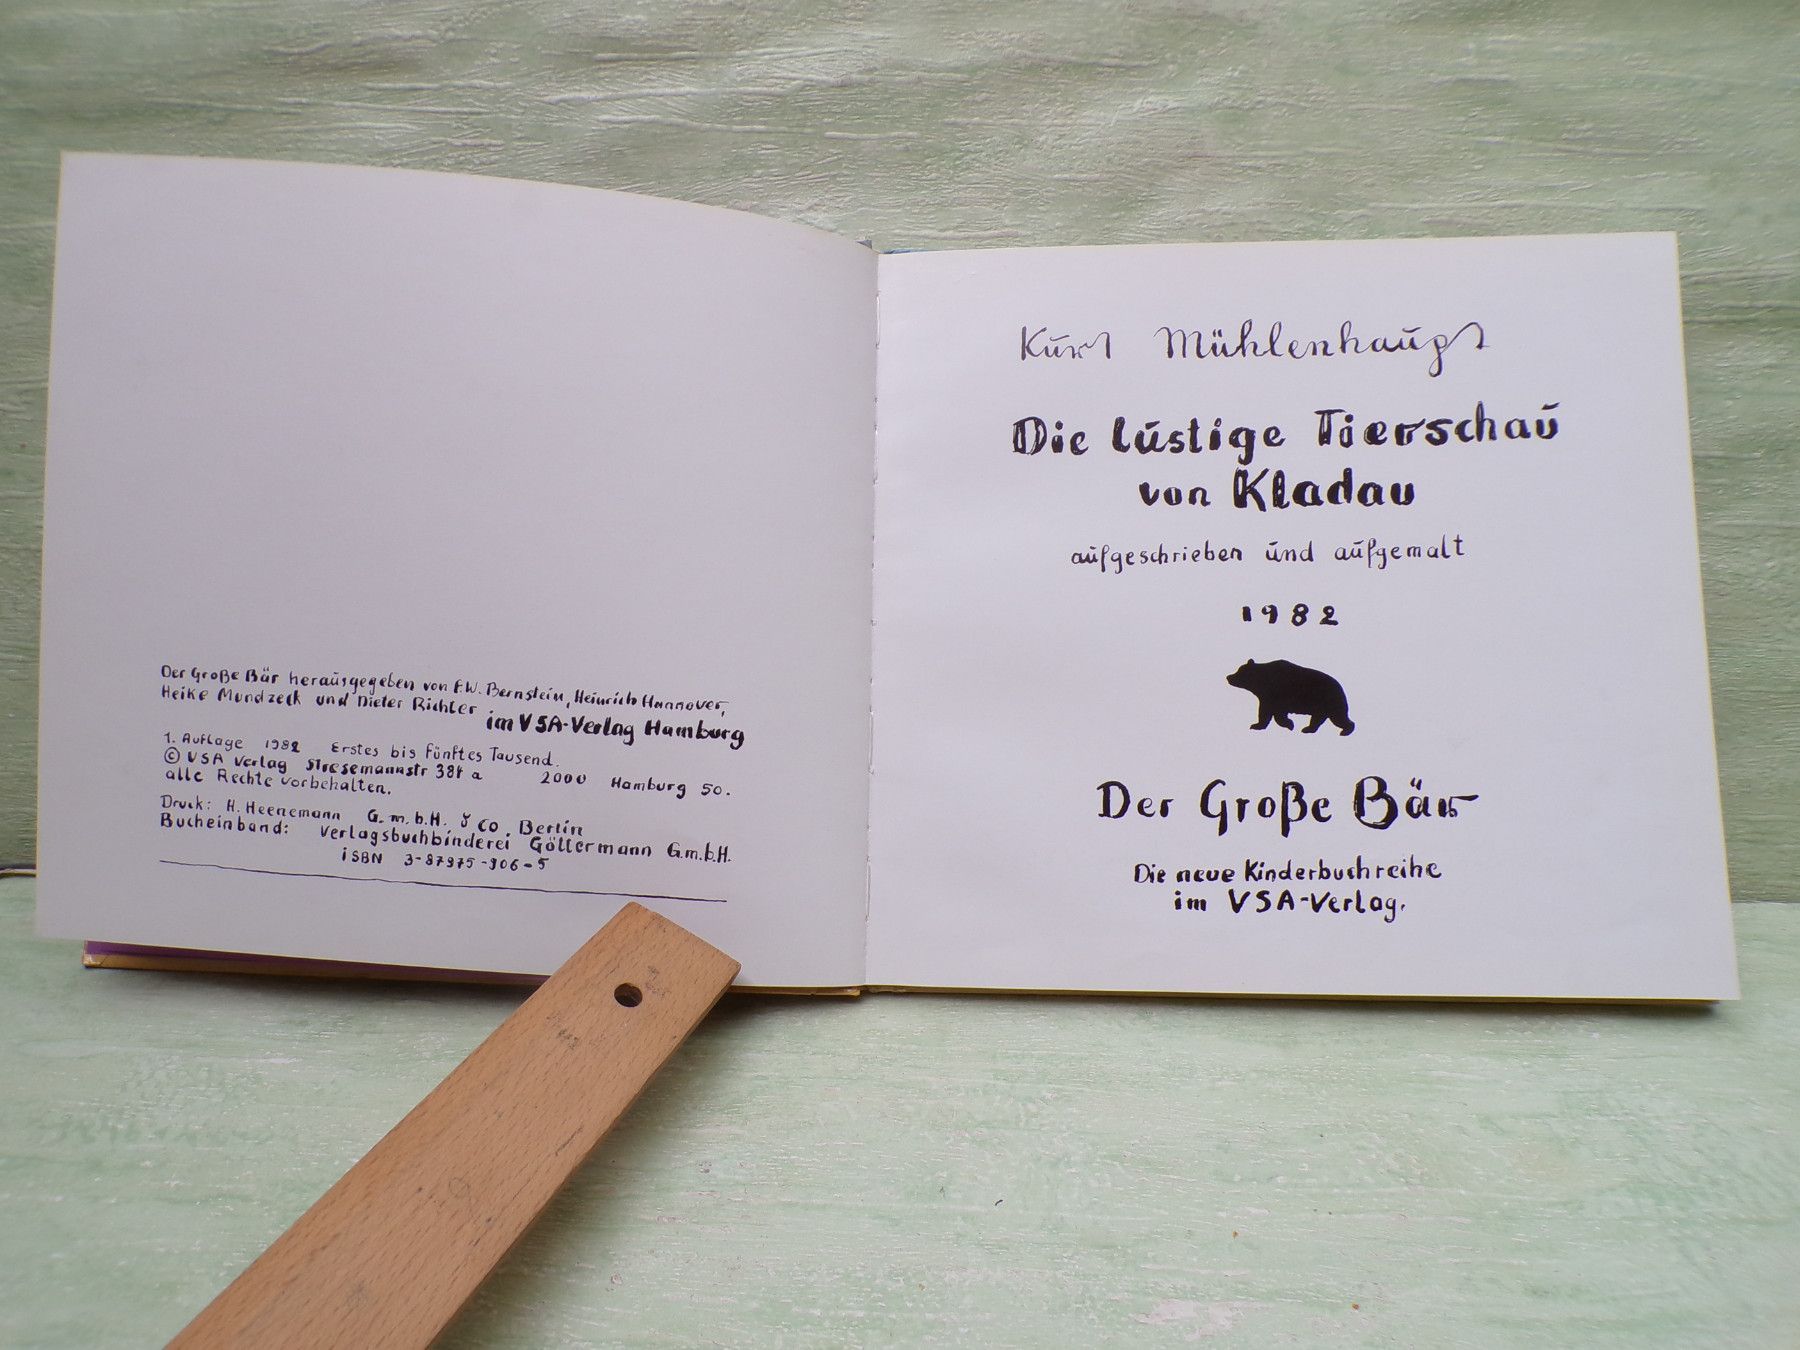 Der Große Bär herausgegeben von F.W. Bernstein, Heinrich Hannover,
Heike Mundzeck und Dieter Richter
im VSA-Verlag Hamburg
1. Auflage 1982 Erstes bis fünftes Tausend.
© VSA Verlag Stresemannstr 384 a 2000 Hamburg 50.
alle Rechte vorbehalten.
Druck: H. Heenemann G.m.b.H. & Co. Berlin
Bucheinband: Verlagsbuchbinderei Göllermann G.m.b.H.
ISBN 3-87975-906-5
Kurt Mühlenhaupt
Die lustige Tierschau
von Kladau
aufgeschrieben und aufgemalt
1982
Der Große Bär
Die neue Kinderbuchreihe
im VSA-Verlag.